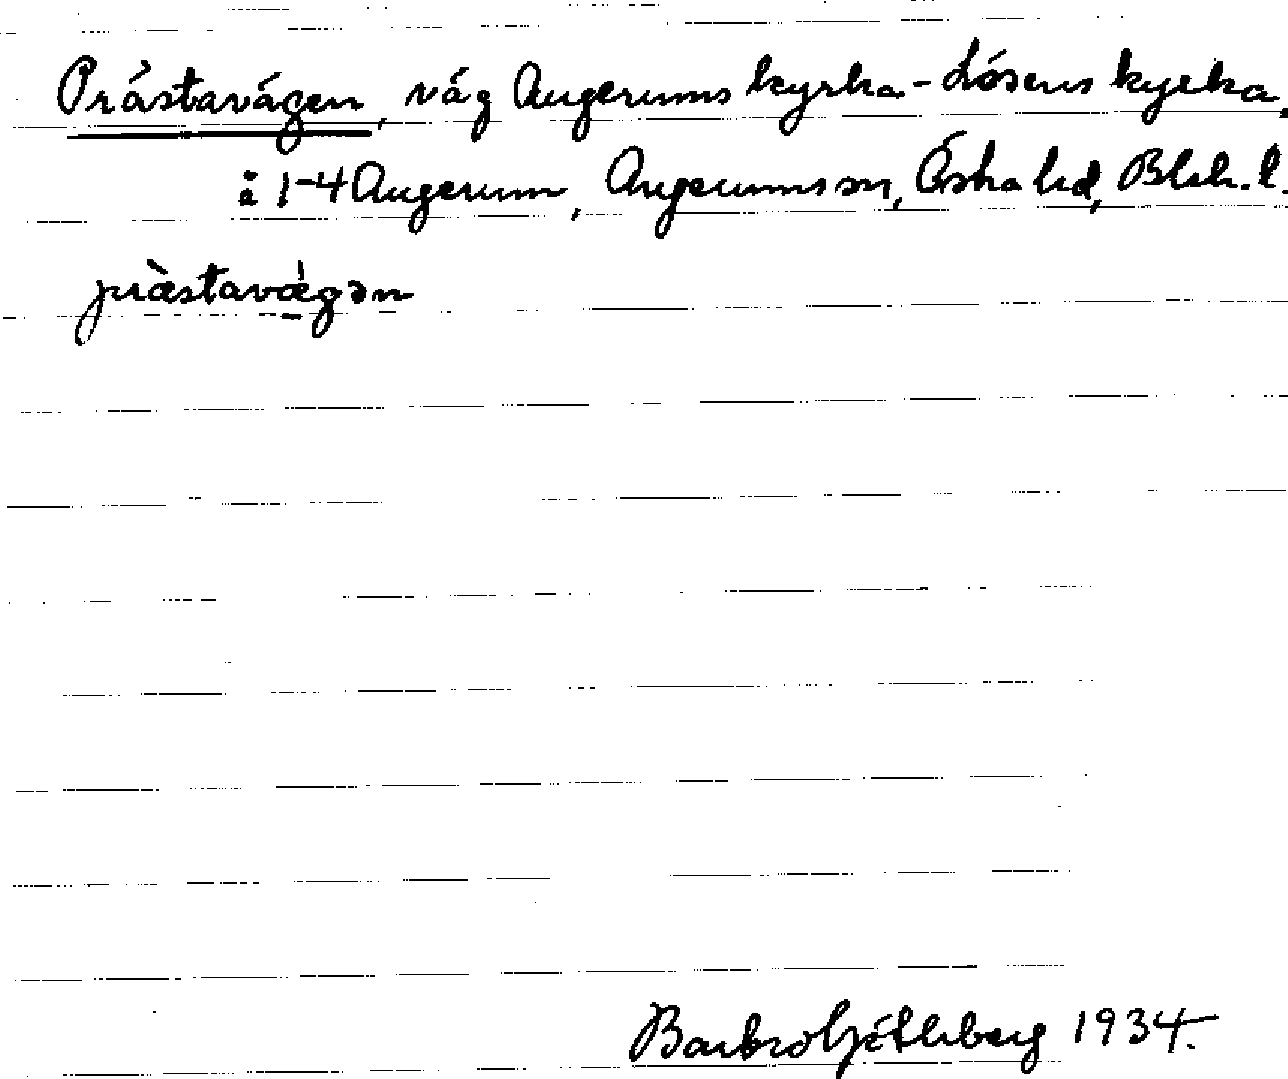 Prästavägen, väg Augerums kyrka - Lösens kyrka,
å 1-4 Augerum, Augerums sn, Östra hd, Blek. l.
præstavæ̀gən
Barbro 1934.